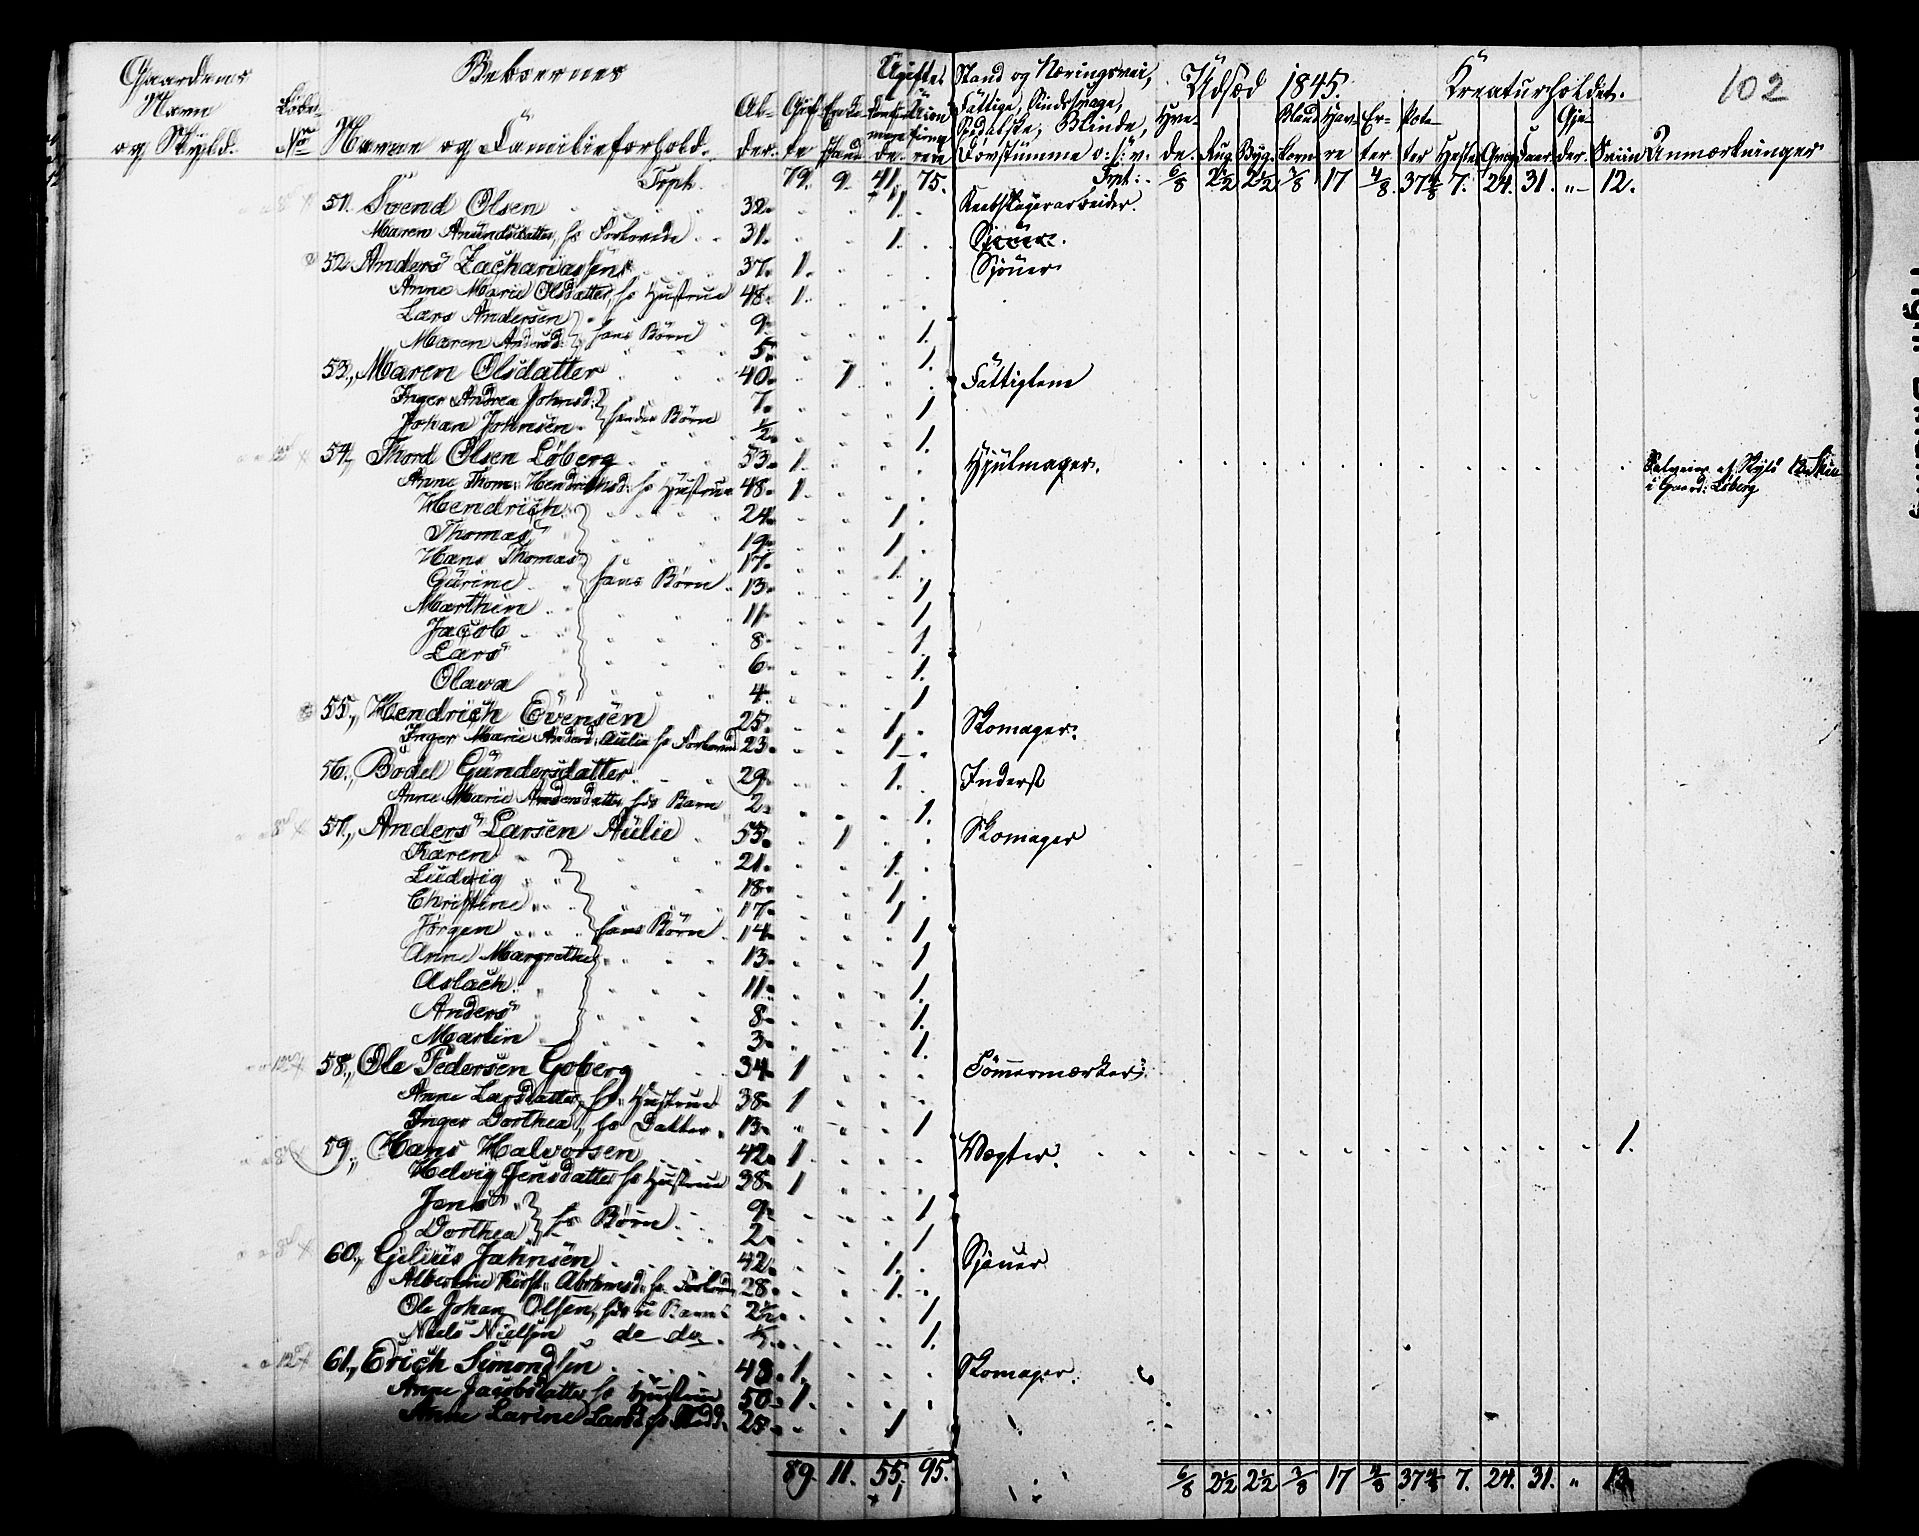 Gaardens Navn og Skyld. Løbe-No Beboernes Navne og Familieforhold. Al-der. Gif-te Enke-stand Ugifte Konfir-merede Ukon-firme-rede Stand og Næringsvei, Fattige, Sindssvage, Spedalske, Blinde, Døvstumme o: s: v: Udsæd 1845. Hve-de. Rug Byg. Bland-korn Hav-re Er-ter Pote-ter Kreaturholdet. Heste Qvæg Faar Gje-der. Sviin Anmærkninger 102
Trpt. 79. 9. 41. 75. Trpt: 6/8 2 1/2 2 1/2 3/8 17 4/8 37 4/8 7. 24. 31. „ 12.
51. Svend Olsen 32. 1. Reebslagerarbeider.
Maren Amundsdatter, hs Forlovede 31. 1.
52. Anders Zachariassen 37. 1. Sjouer
Anne Marie Olsdatter, hs Hustrue 48. 1.
Lars Andersen 9. 1.
Maren Andersd: hans Børn 5. 1.
53., Maren Olsdatter 40. 1 Fattiglem
Inger Andrea Johnsd: 7. 1
Johan Johnsen. hendes Børn 1/2. 1.
54., Thord Olsen Løberg 53. 1. Hjulmager. Selveier af Skyld 12 Skill i Gaard: Løberg
Anne Thom: Hendrichsd: hs Hustrue 48. 1.
Hendrich 24. 1
Thomas 19. 1.
Hans Thomas 17. 1.
Gurine hans Børn 13. 1
Marthin 11. 1
Jacob 8. 1
Lars 6. 1.
Olava 4. 1
55., Hendrich Evensen 25. 1. Skomager.
Inger Marie Andersd: Aulie hs Forlovede 23. 1.
56., Bodel Gundersdatter 29. 1. Inderst
Anne Marie Andersdatter, hds Barn 2. 1.
57., Anders Larsen Aulie 55. 1 Skomager
Karen 21. 1.
Ludvig 18. 1
Christine 17. 1
Jørgen hans Børn 14. 1
Anne Margrethe 13. 1
Aslach 11. 1
Anders 8. 1.
Martin 3. 1.
58., Ole Pedersen Goberg 34. 1 Tømmermærker
Anne Larsdatter, hs Hustrue 38. 1
Inger Dorthea, hs Datter 13. 1
59., Hans Halvorsen 42. 1 Vægter. 1.
Helvig Jensdatter hs Hustrue 38. 1
Jens 9. 1
Dorthea hs Børn 2. 1
60., Gilius Jahnsen 42. 1. Sjouer
Albertine Kirst: Abrahmsd: hs Forlovede 28. 1.
Ole Johan Olsen, hds u Barn 2 1/2. 1
Niels Nielsen de do 1.
61., Erich Simondsen 48. 1. Skomager.
Anne Jacobsdatter hs Hustrue 50. 1.
Anne Larine Larsd: hs 25. 1
89. 11. 55. 95. 6/8 2 1/2 2 1/2 3/8 17 4/8 37 4/8 7. 24. 31. „ 13.
+ 1